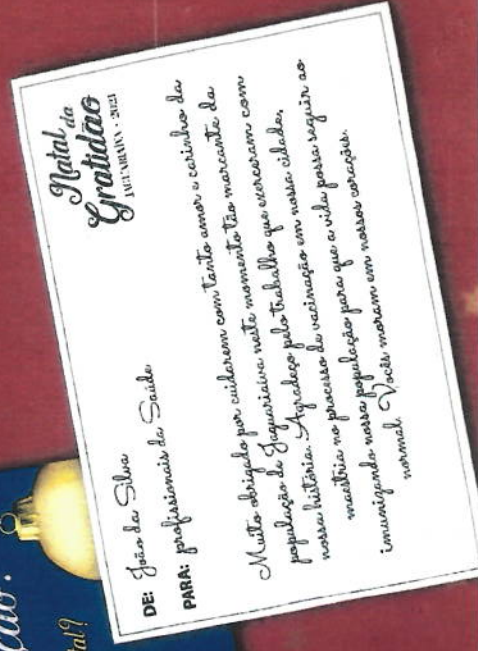 Natal da
Gratidão
JAGUARIAÍVA • 2021
DE: João da Silva
PARA: profissionais da Saúde
Muito obrigado por cuidarem com tanto amor e carinho da
população de Jaguariaíva neste momento tão marcante da
nossa história. Agradeço pelo trabalho que exerceram com
maestria no processo de vacinação em nossa cidade,
imunizando nossa população para que a vida possa seguir ao
normal. Vocês moram em nossos corações.